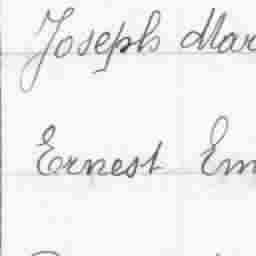 Joseph Mar
Ernest Em